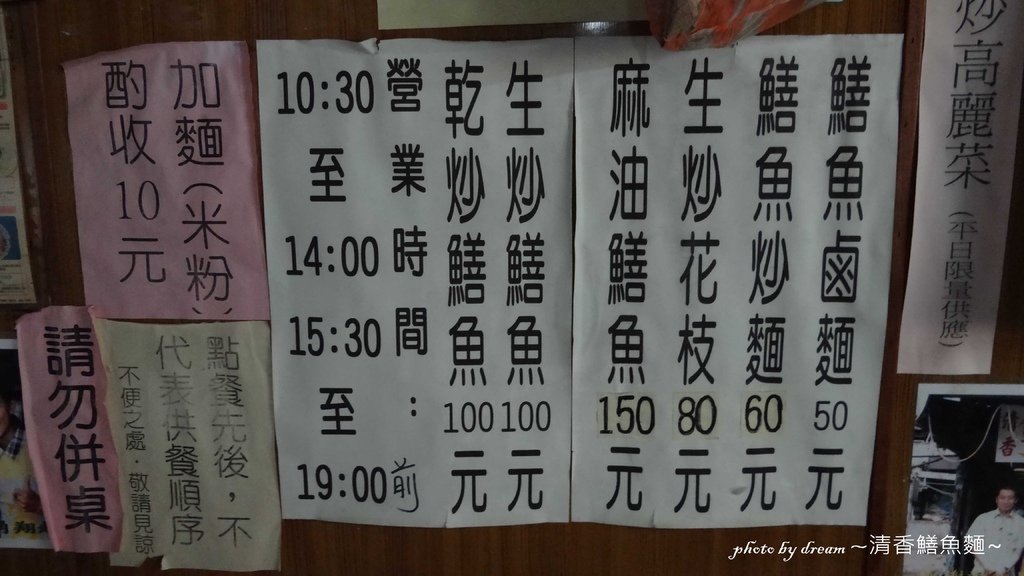 炒高麗菜(平日限量供應)
鱔魚鹵麵50元
鱔魚炒麵60元
生炒花枝80元
麻油鱔魚150元
生炒鱔魚100元
乾炒鱔魚100元
營業時間:
10:30
至
14:00
15:30
至
19:00前
加麵(米粉)
酌收10元
點餐先後,不
代表供餐順序
不便之處.敬請見諒
請勿併桌
photo by dream ~清香鱔魚麵~